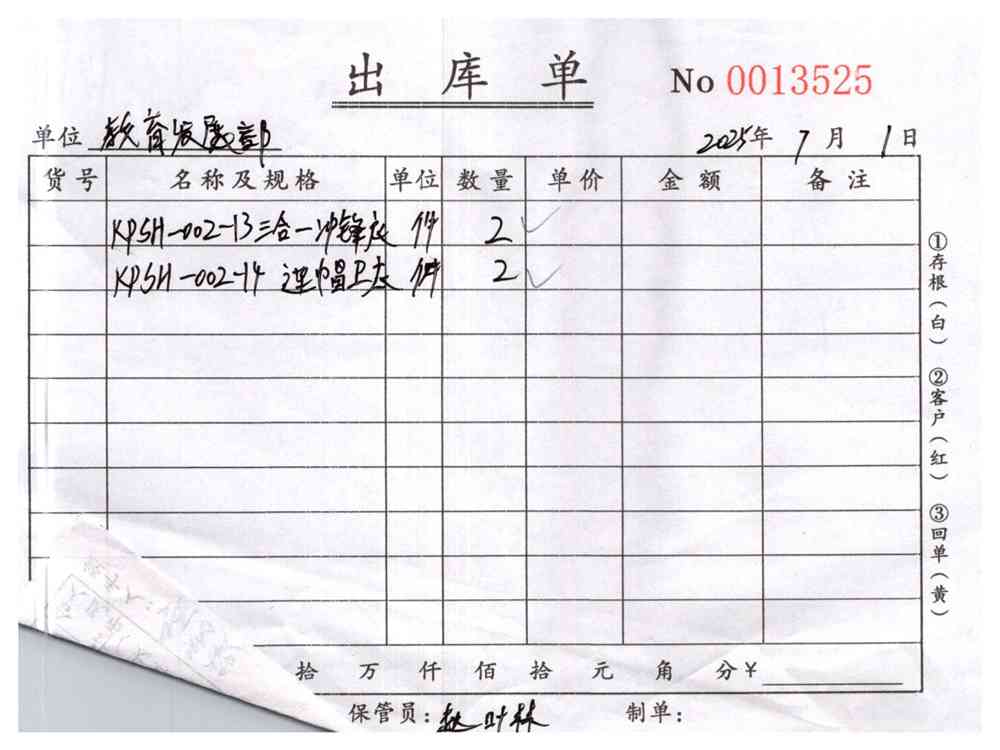 出库单 No 0013525
单位 教育发展部 2025年 7月 1日
货号 名称及规格 单位 数量 单价 金额 备注
KPSH-002-13三合一冲锋衣 件 2 ✓
KPSH-002-14 连帽卫衣 件 2 ✓
拾 万 仟 佰 拾 元 角 分¥
保管员: 叶林 制单:
①存根(白) ②客户(红) ③回单(黄)